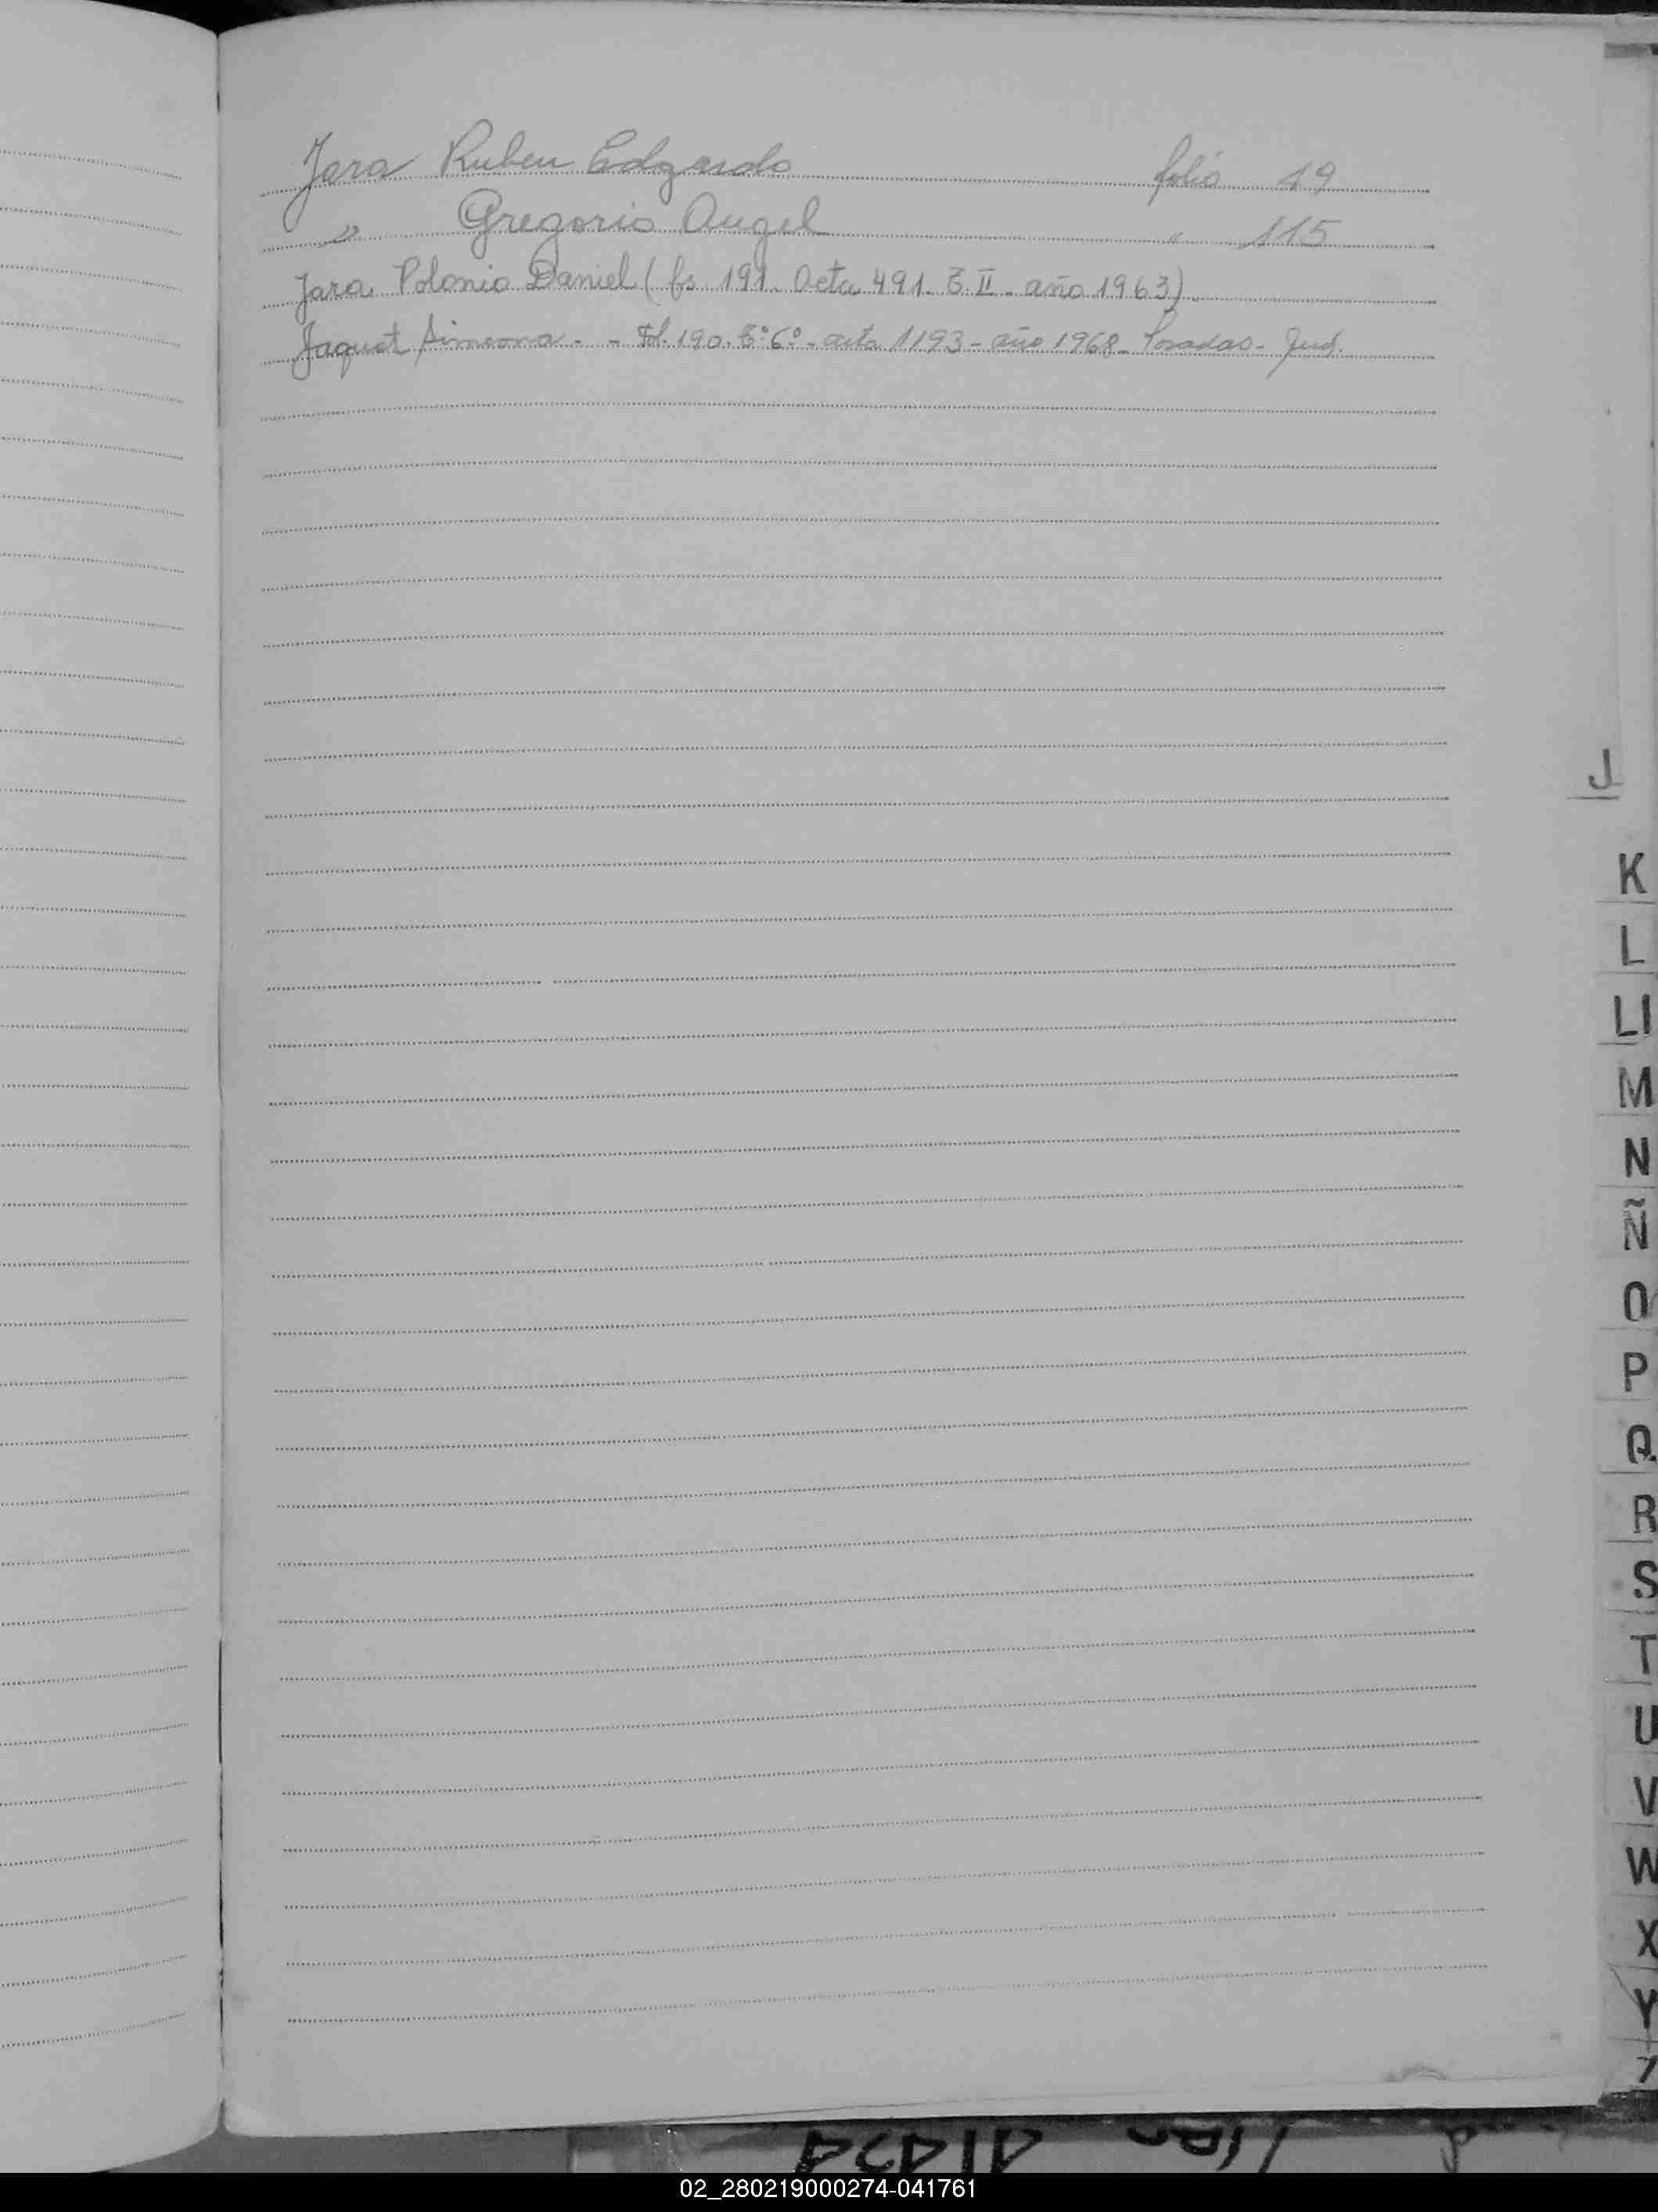 Jara Ruben Edgardo folio 19
" Gregorio Angel " 115
Jara Polonio Daniel (fs 191. Acta 491. T. II. año 1963)
Jaquet Simeona. - Fol. 190. T: 6º - acta 1193 - año 1968 - Posadas - Jud.
J
K
L
Ll
M
N
Ñ
O
P
Q
R
S
T
U
V
W
X
Y
02_280219000274-041761